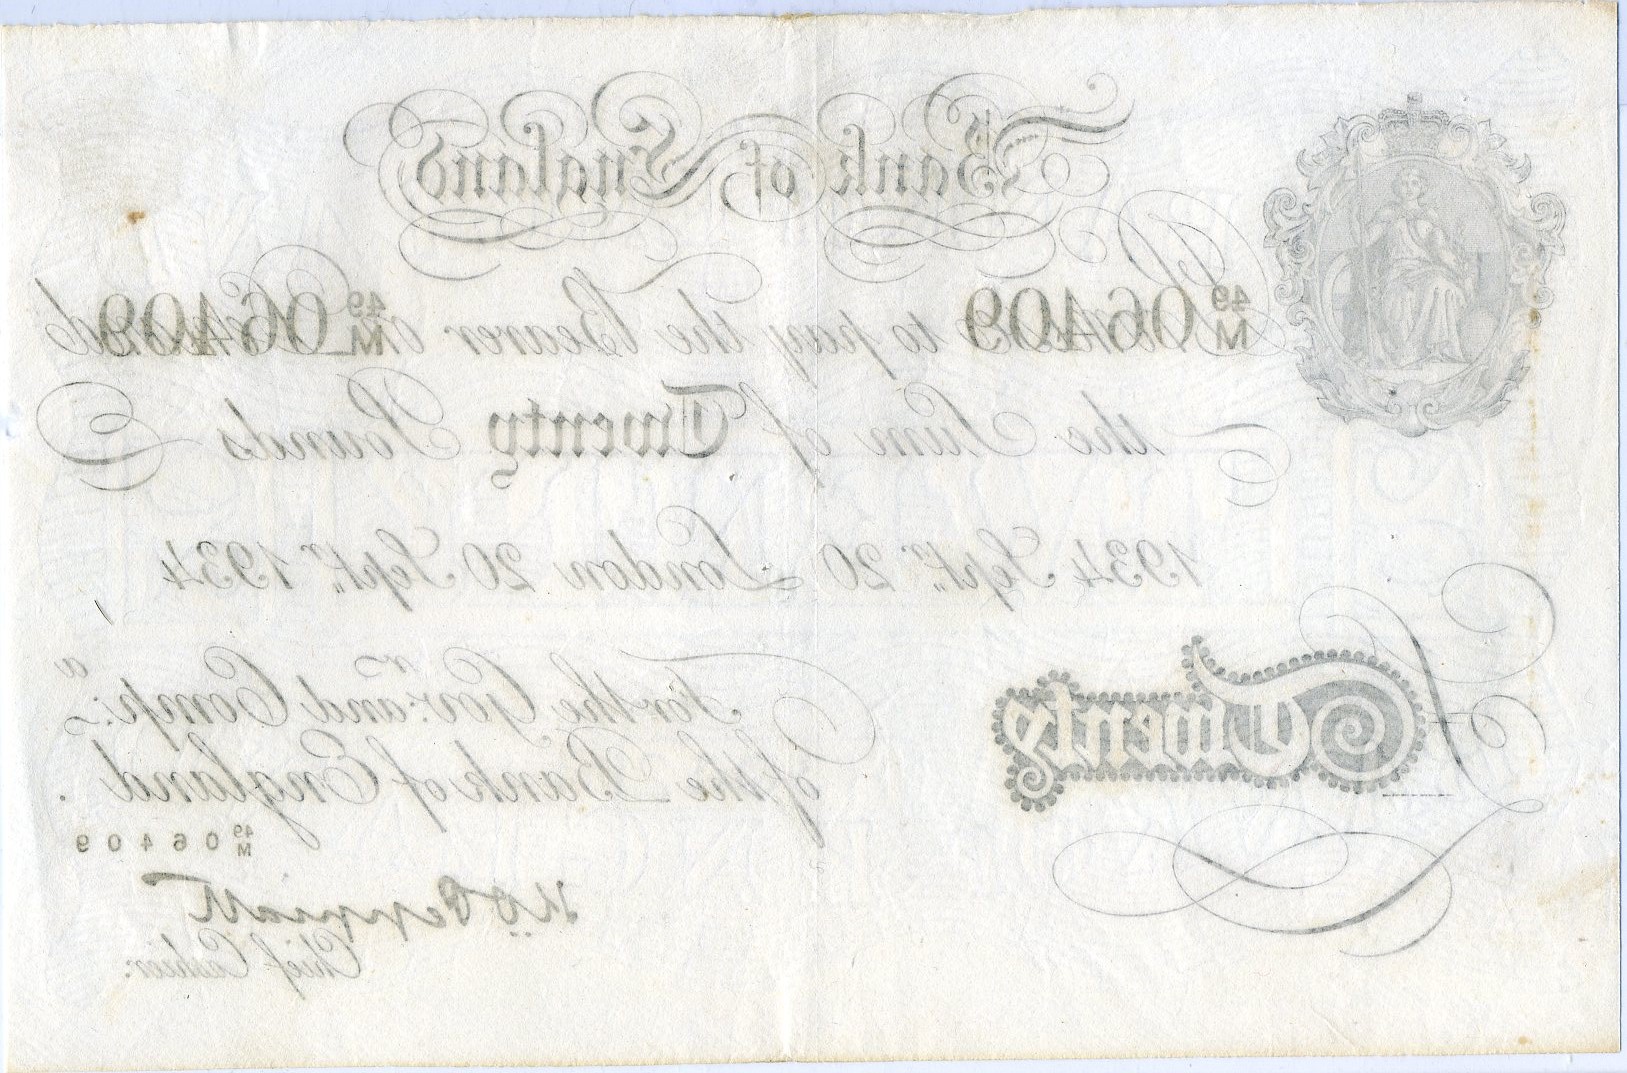 Bank of England
49
M 06409 to pay the Bearer on 49
M 06409
the Sum of Twenty Pounds
1934 Septr. 20 London 20 Septr. 1934
For the Govr. and Compa. of the Bank of England.
Twenty
49
M 06409
Chief Cashier.